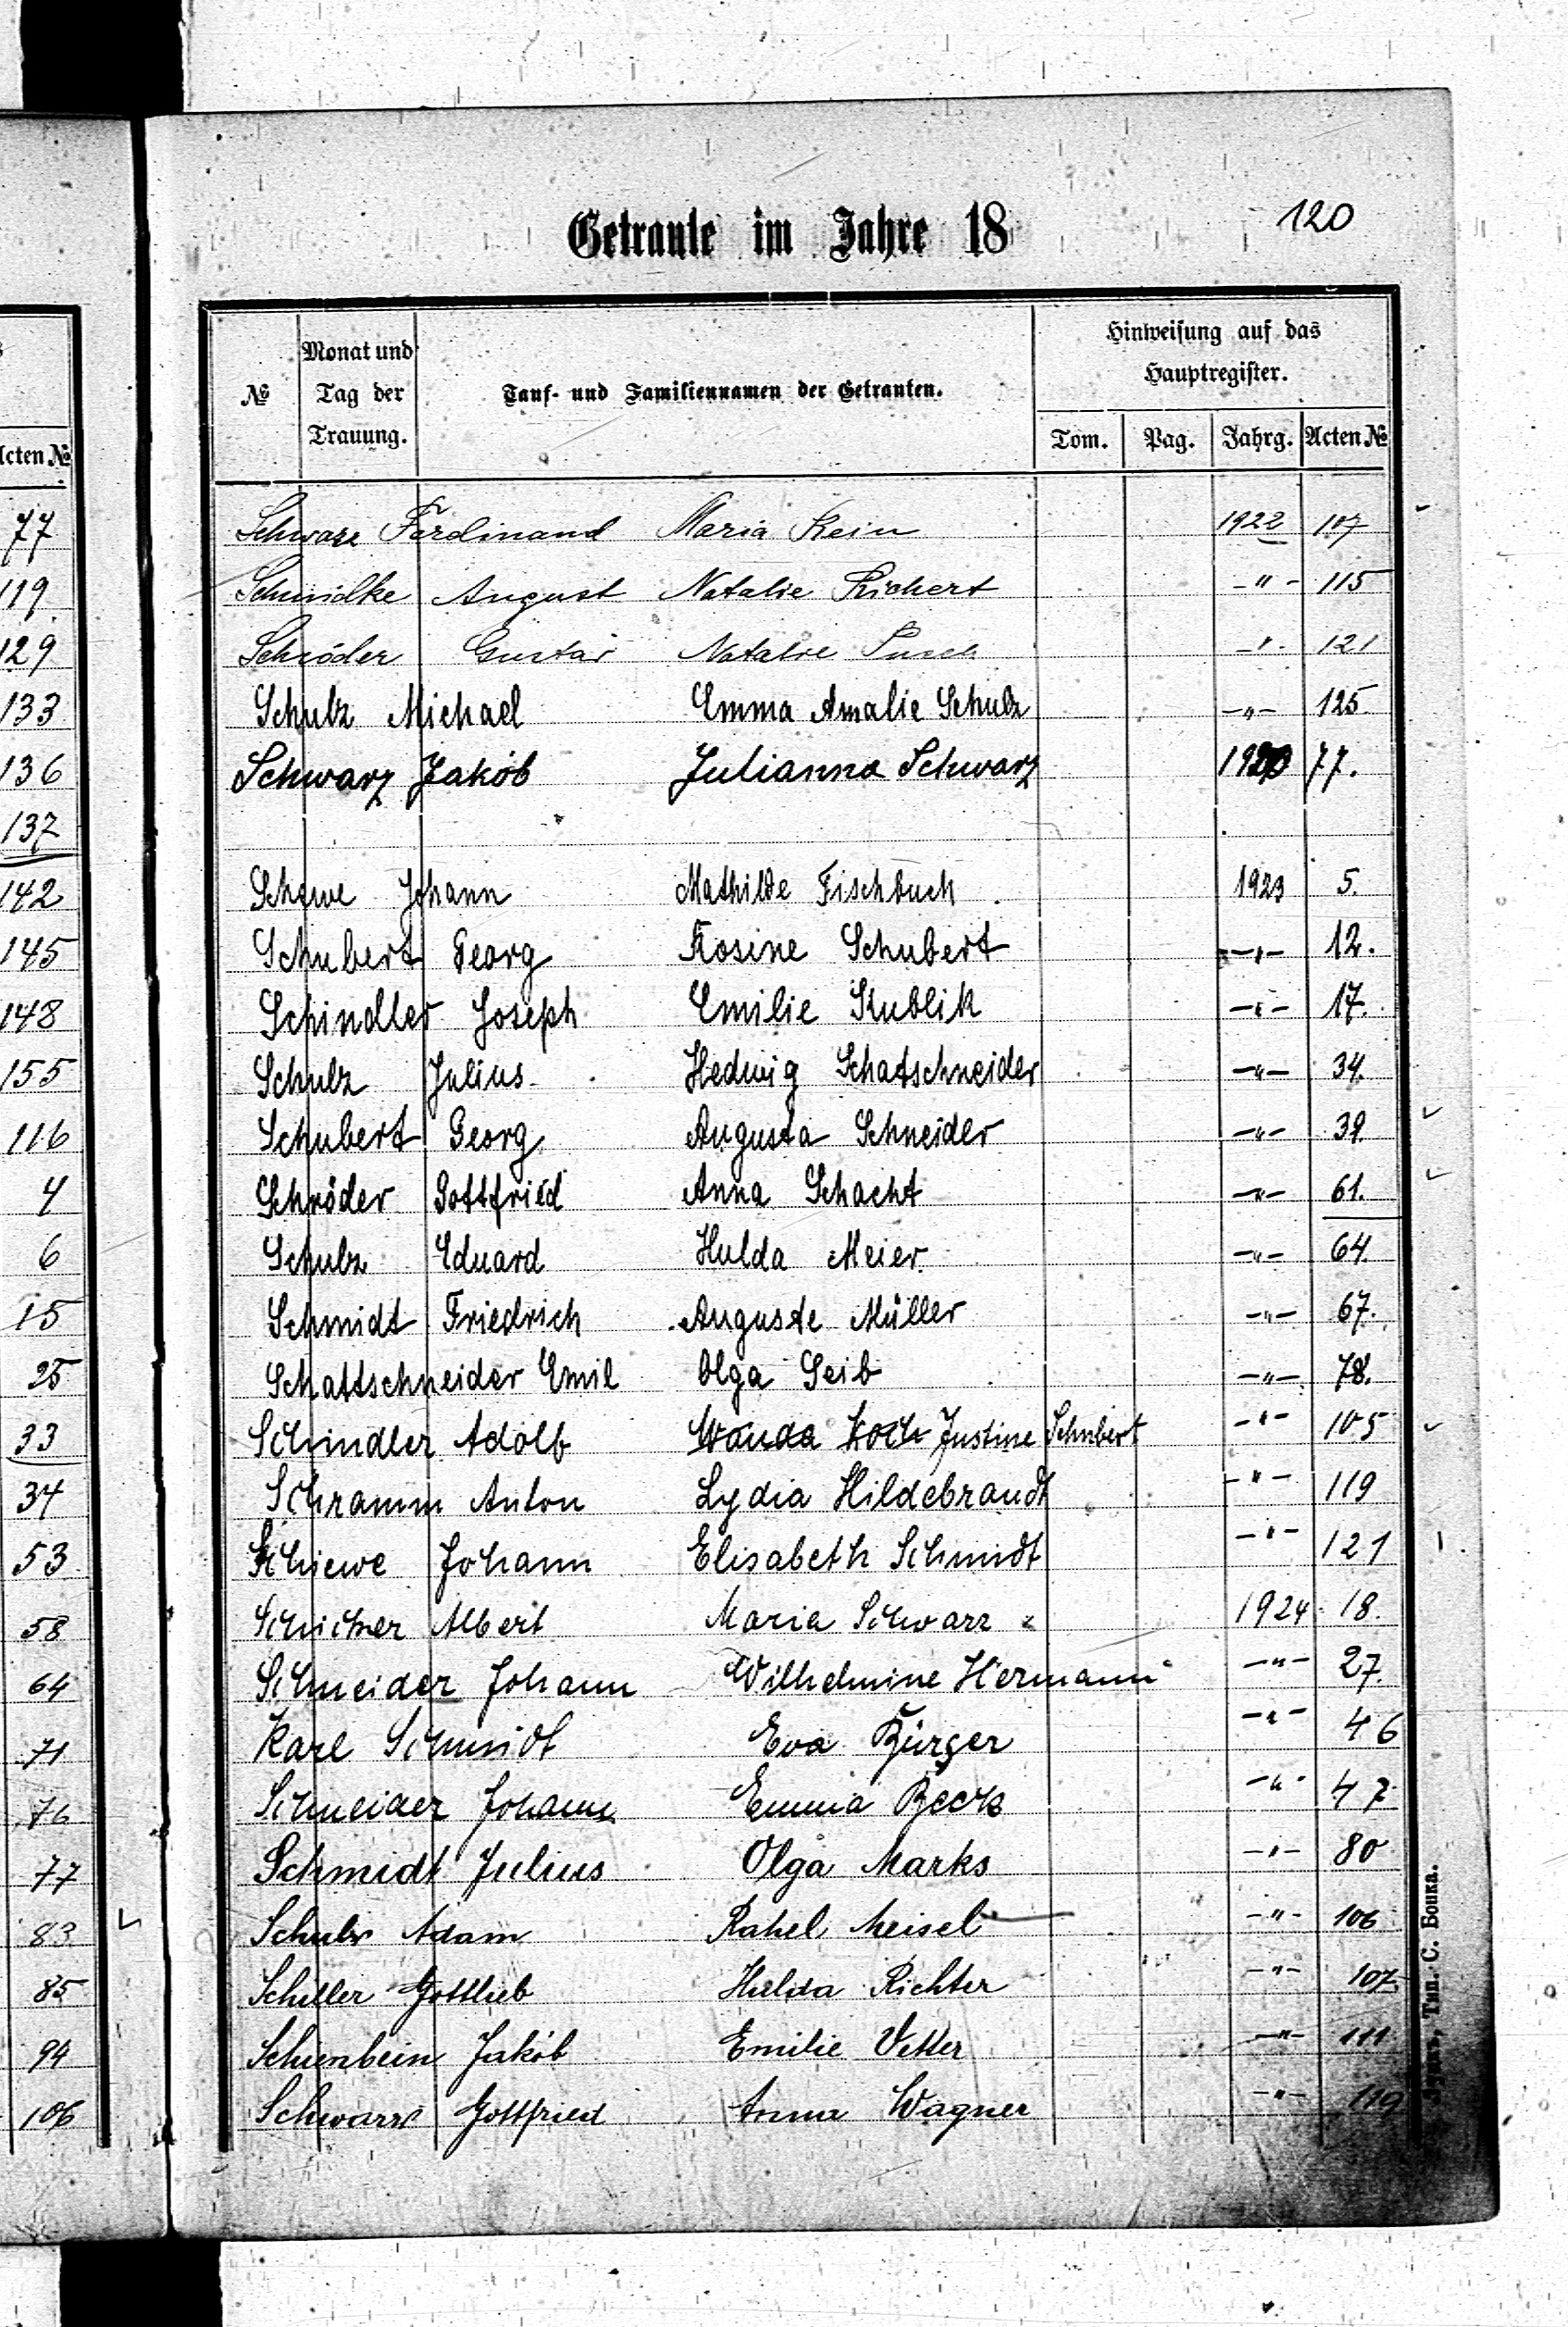 120
Getraute im Jahre 18
№ Monat und Tag der Trauung. Tauf- und Familiennamen der Getrauten. Hinweisung auf das Hauptregister.
Tom. Pag. Jahrg. Acten №
Acten №
77 Schwarz Ferdinand Maria Rein 1922 107
119 Schmidke August Natalie Richert -"- 115
129 Schröder Gustav Natalie -"- 121
133 Schulz Michael Emma Amalie Schulz -"- 125
136 Schwarz Jakob Julianna Schwarz 1920 77.
137
142 Johann Mathilde Fischbuch 1923 5.
145 Schubert Georg Rosine Schubert -"- 12.
148 Schindler Joseph Emilie Kublik -"- 17.
155 Schulz Julius Hedwig Schatschneider -"- 34.
116 Schubert Georg Augusta Schneider -"- 39.
4 Schröder Gottfried Anna Schacht -"- 61.
6 Schulz Eduard Hulda Meier -"- 64.
15 Schmidt Friedrich Auguste Müller -"- 67.
25 Schattschneider Emil Olga Seib -"- 78.
33 Schindler Adolf Wanda Koch Justine Schubert -"- 105
34 Schramm Anton Lydia Hildebrandt -"- 119
53 Schiewe Johann Elisabeth Schmidt -"- 121
58 Albert Maria Schwarz 1924 18.
64 Schneider Johann Wilhelmine Hermann -"- 27.
71 Karl Schmidt Eva Bürger -"- 46
76 Schneider Johann Emma Beck -"- 47
77 Schmidt Julius Olga Marks -"- 80
83 Schulz Adam Rahel Meisel -"- 106
85 Schiller Gottlieb Hulda Richter -"- 107.
94 Schienbein Jakob Emilie Vetter -"- 111
106 Schwarz Gottfried Anna Wagner -"- 119
Тип. С. Бошка.